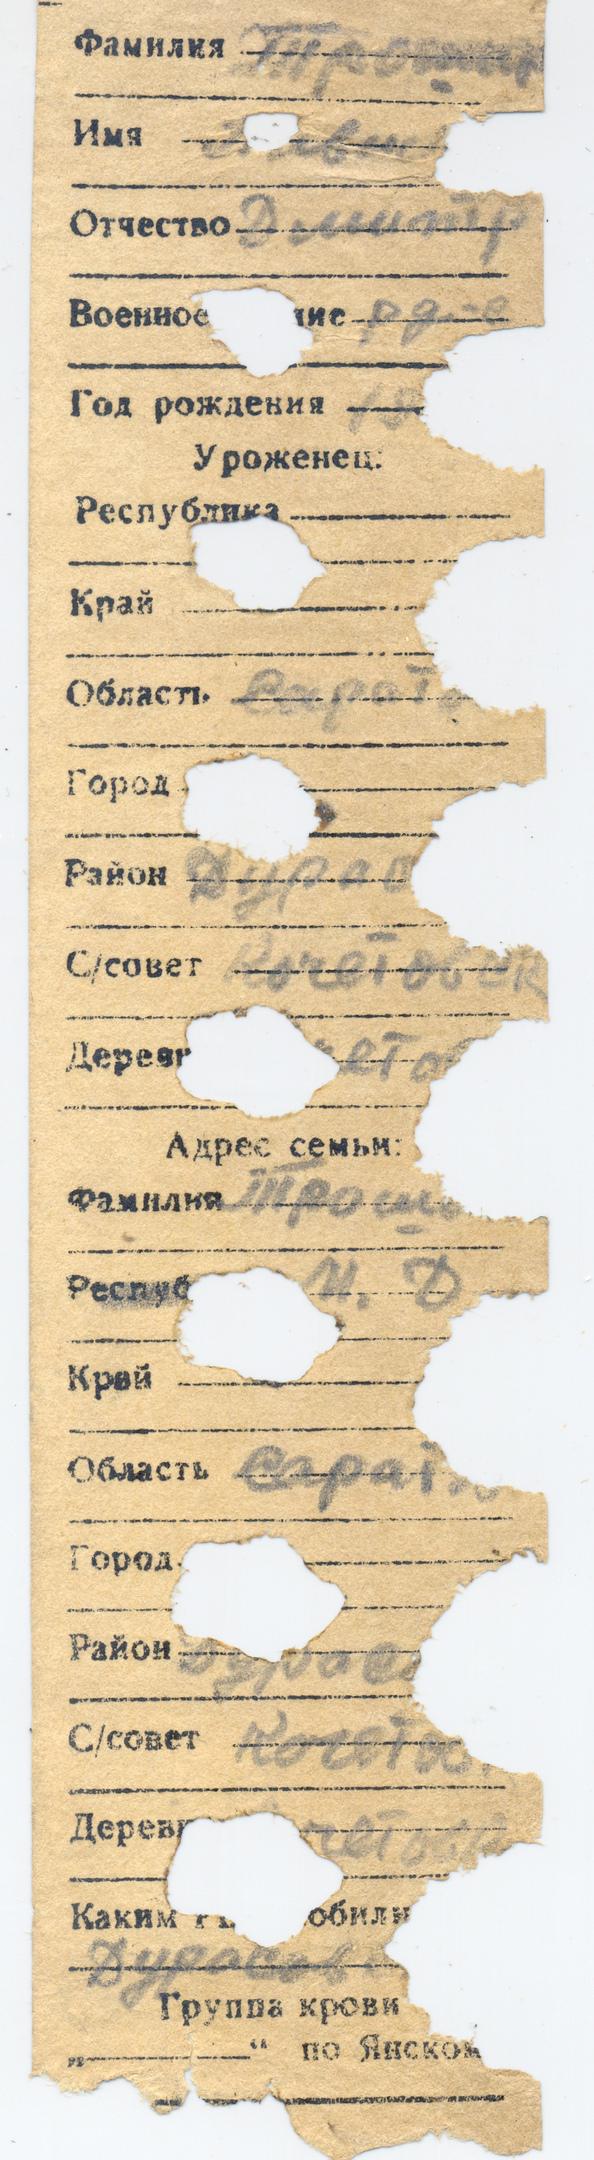 Фамилия Трош
Имя
Отчество Дмитр
Военное ние ря-е
Год рождения 18
Уроженец:
Республика
Край
Область Сарат
Город
Район Дурас
С/совет Кочетовск
Деревн чето
Адрес семьи:
Фамилия Трош
Респуб И. Д
Край
Область Сарат
Город
Район Дурасо
С/совет Кочетов
Деревн четов
Каким Р обилн
Дурасов
Группа крови
„ “ по Янском